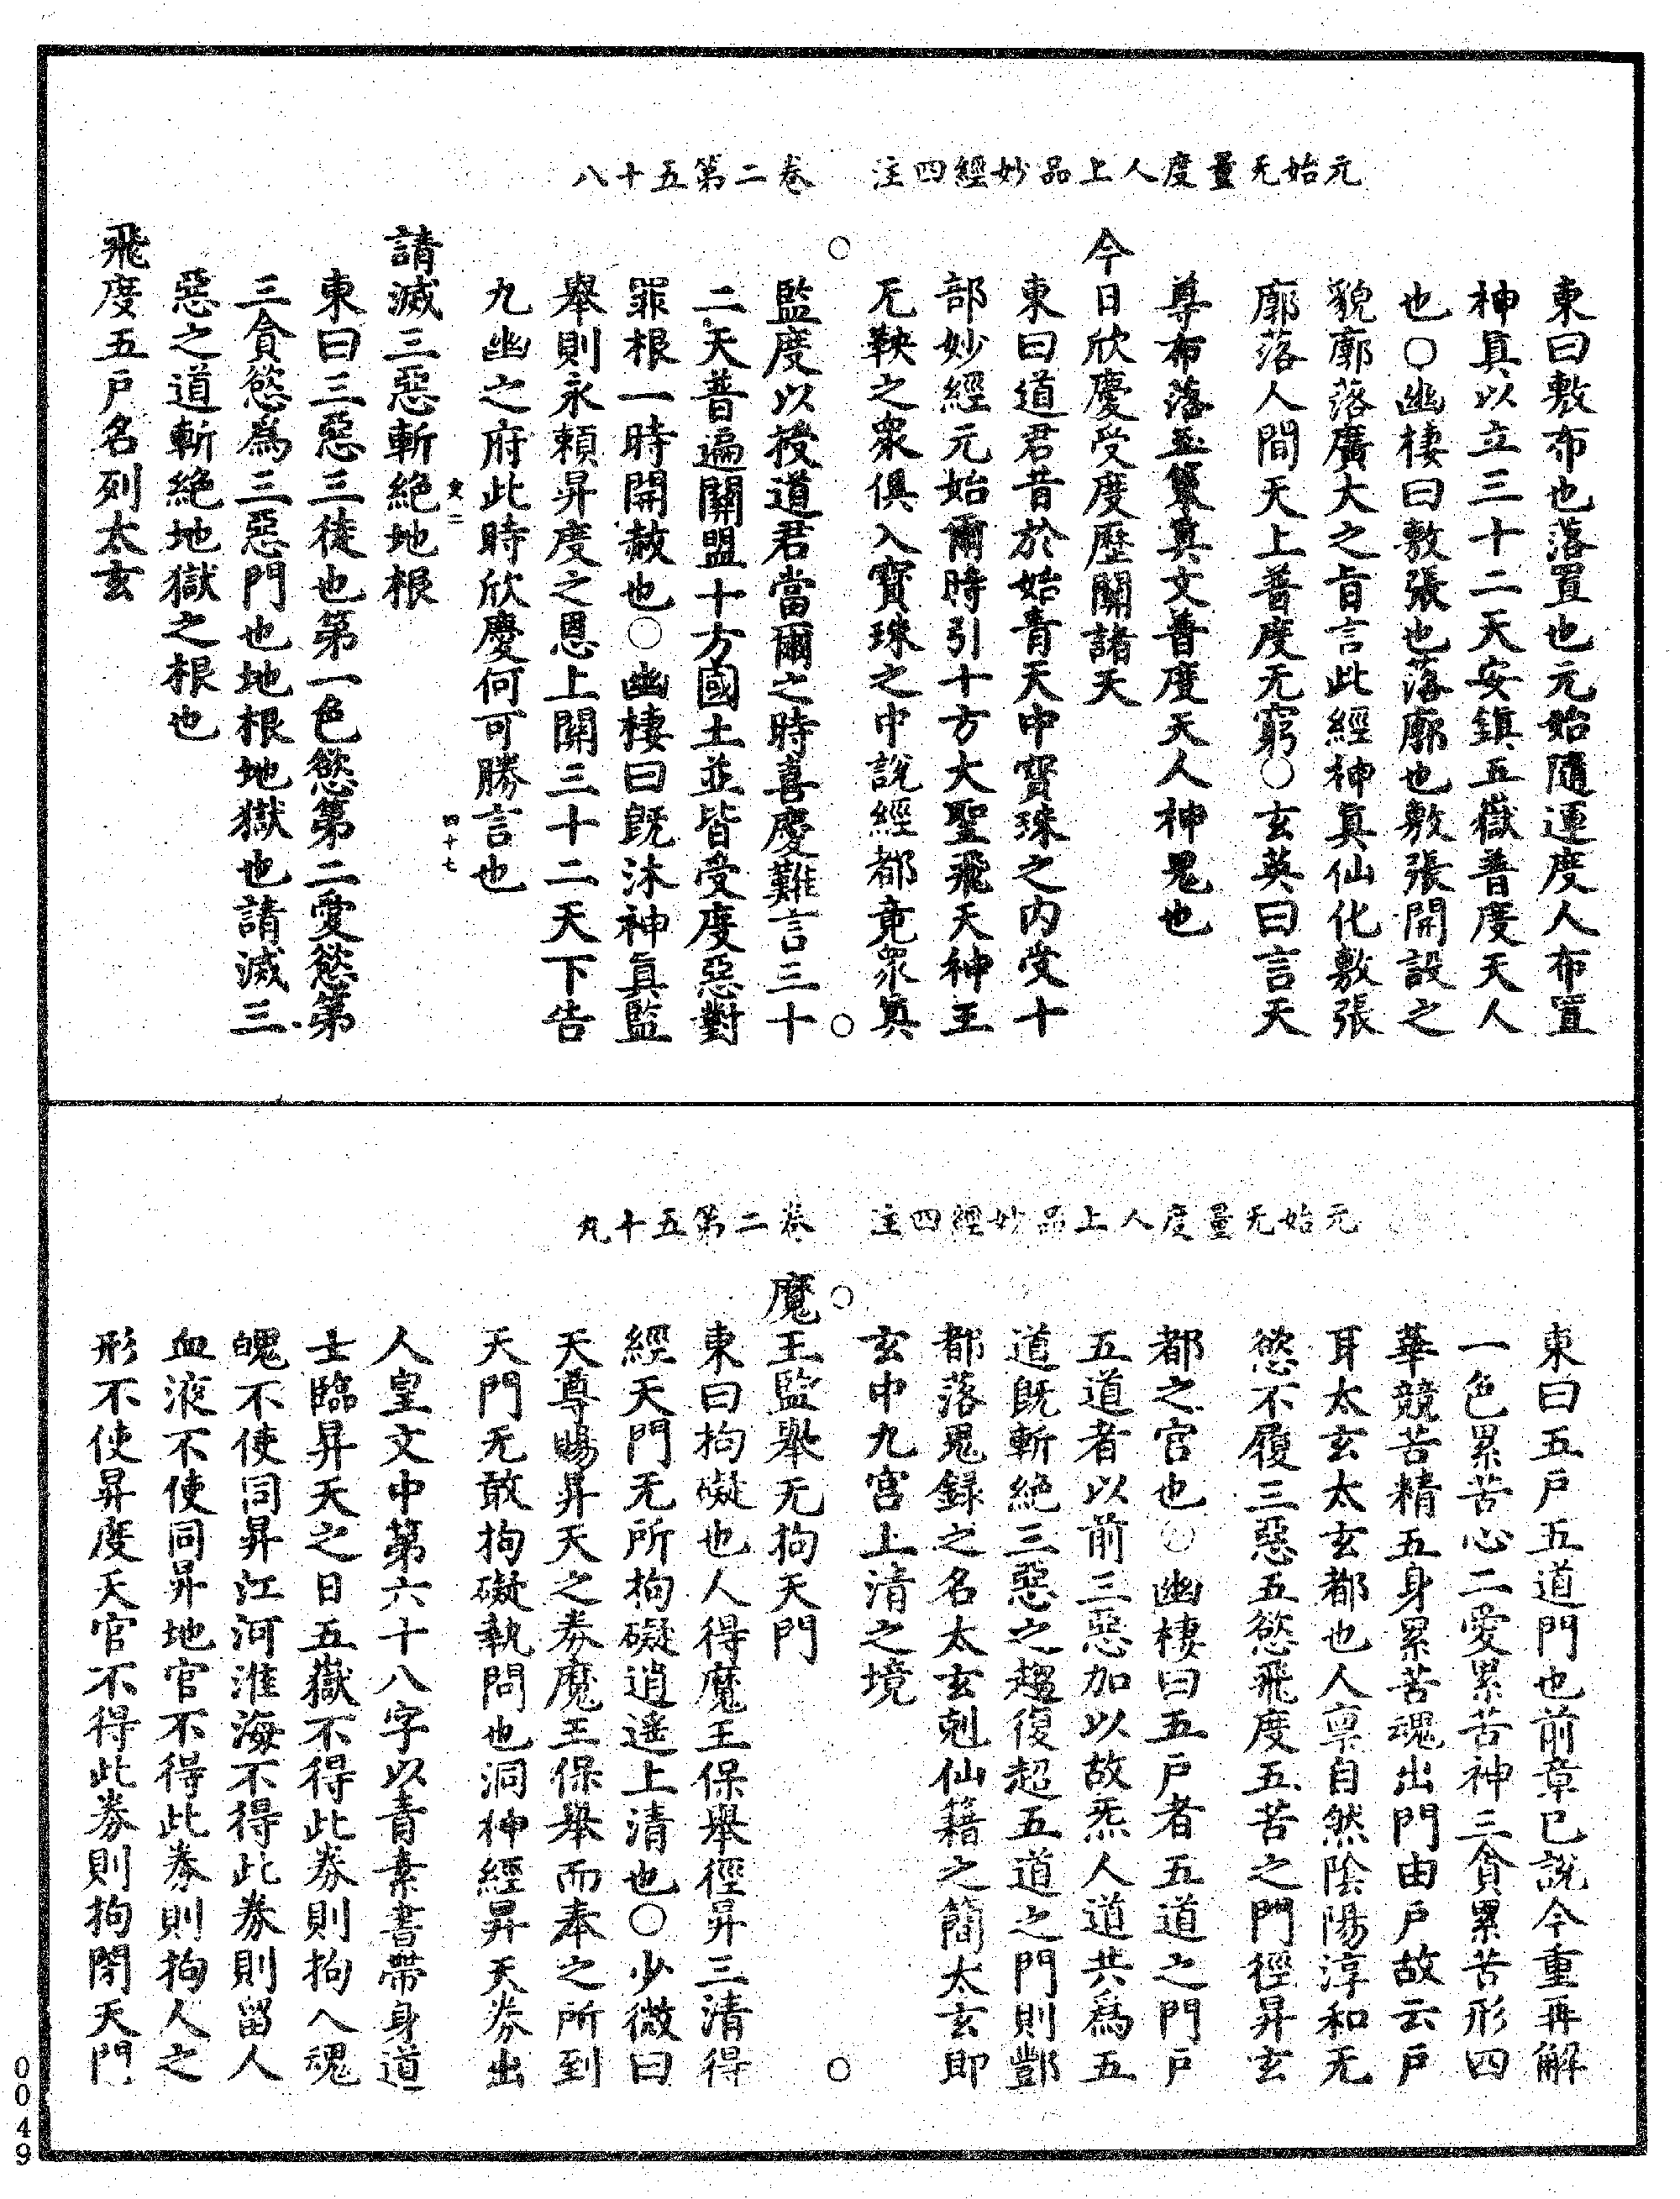 元始无量度人上品妙經四注　卷二第五十八
東曰敷布也落置也元始隨運度人布置
神真以立三十二天安鎮五嶽普度天人
也〇幽棲曰敷張也落廓也敷張開設之
貌廓落廣大之旨言此經神真仙化敷張
廓落人間天上普度无窮〇玄英曰言天
尊布落玉篆真文普度天人神鬼也
今日欣慶受度歷關諸天
東曰道君昔於始青天中寶珠之內受十
部妙經元始爾時引十方大聖飛天神王
无鞅之眾俱入寶珠之中說經都竟眾真
監度以授道君當爾之時喜慶難言三十
二天普遍關盟十方國土並皆受度惡對
罪根一時開赦也〇幽棲曰既沐神真監
舉則永賴昇度之恩上關三十二天下告
九幽之府此時欣慶何可勝言也
四十七
請滅三惡斬絕地根
東曰三惡三徒也第一色慾第二愛慾第
三貪慾為三惡門也地根地獄也請滅三
惡之道斬絕地獄之根也
飛度五戶名列太玄
元始无量度人上品妙經四注　卷二第五十九
東曰五戶五道門也前章已說今重再解
一色累苦心二愛累苦神三貪累苦形四
華競苦精五身累苦魂出門由戶故云戶
耳太玄太玄都也人稟自然陰陽淳和无
慾不履三惡五慾飛度五苦之門徑昇玄
都之官也〇幽棲曰五戶者五道之門戶
五道者以前三惡加以故炁人道共為五
道既斬絕三惡之趨復超五道之門則酆
都落鬼錄之名太玄剋仙籍之簡太玄即
玄中九宮上清之境
魔王監舉无拘天門
東曰拘礙也人得魔王保舉徑昇三清得
經天門无所拘礙逍遙上清也〇少微曰
天尊賜昇天之券魔王保舉而奉之所到
天門无敢拘礙執問也洞神經昇天券出
人皇文中第六十八字以青素書帶身道
士臨昇天之日五嶽不得此券則拘入魂
魄不使同昇江河淮海不得此券則留人
血液不使同昇地官不得此券則拘人之
形不使昇度天官不得此券則拘閉天門
0049